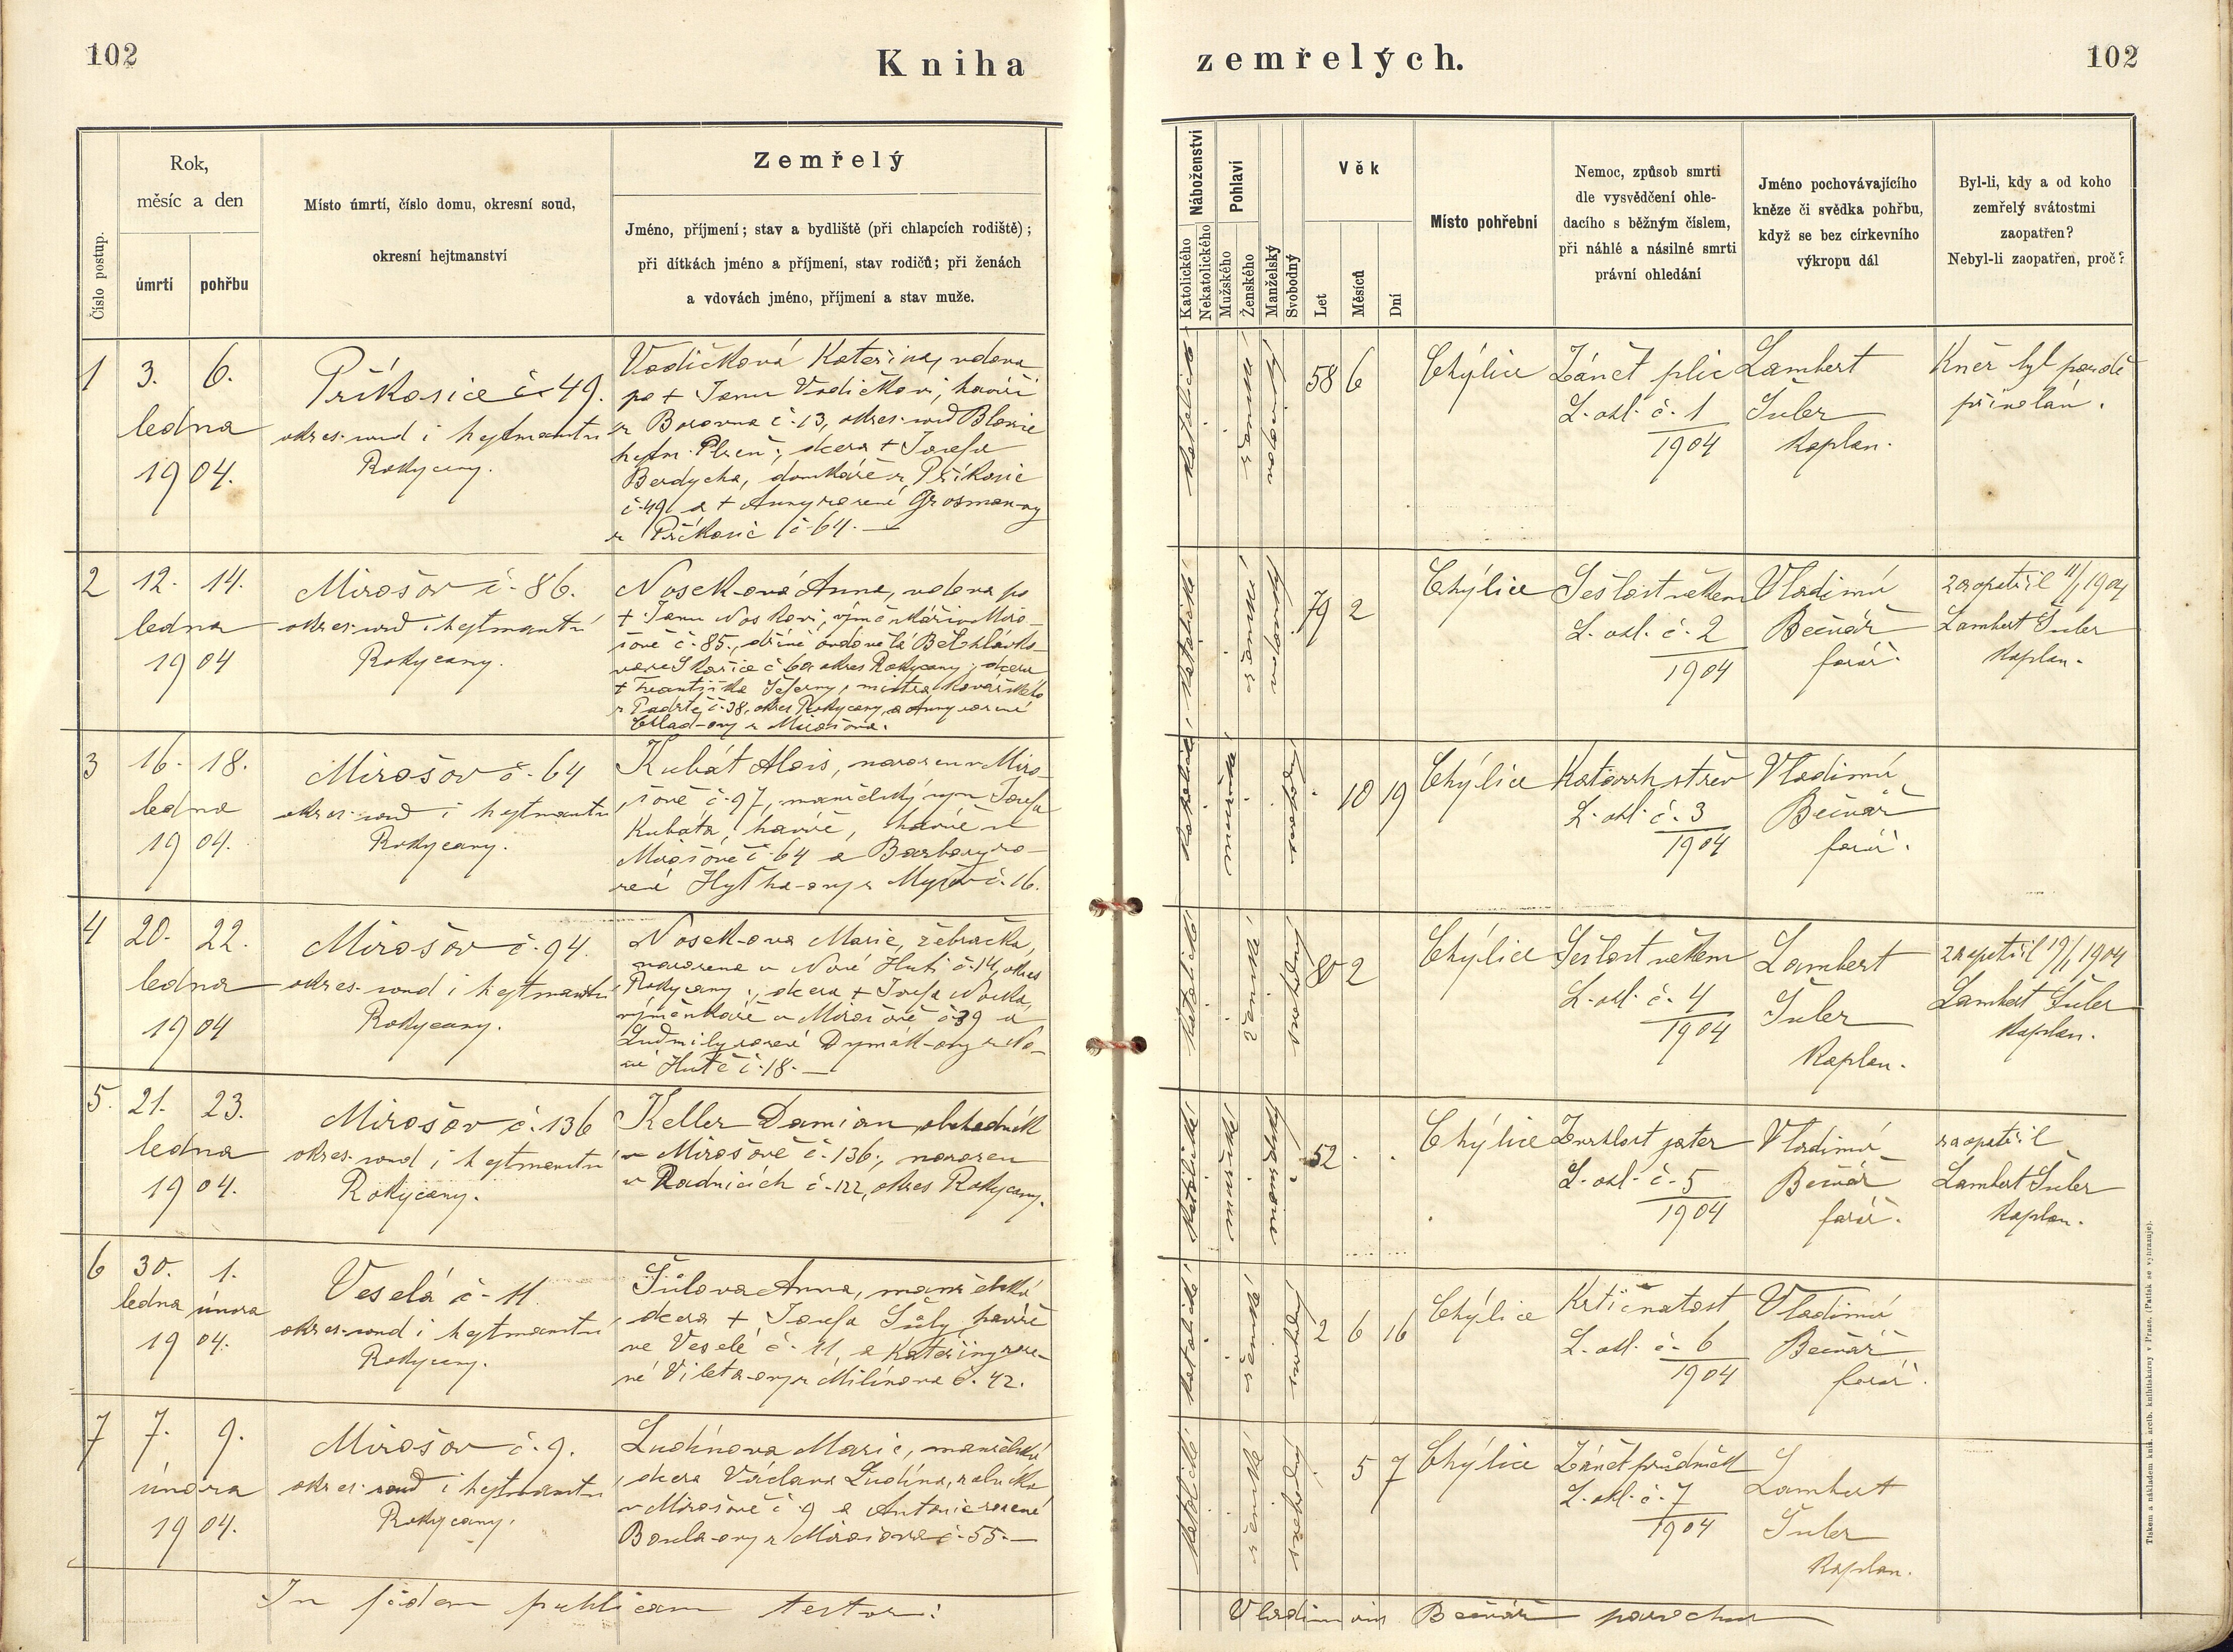 102
Kniha
zemřelých.
102
Číslo postup.
Rok,
měsíc a den
úmrtí
pohřbu
Místo úmrtí, číslo domu, okresní soud,
okresní hejtmanství
Zemřelý
Jméno, příjmení; stav a bydliště (při chlapcích rodiště);
při dítkách jméno a příjmení, stav rodičů; při ženách
a vdovách jméno, příjmení a stav muže.
Náboženství
Katolického
Nekatolického
Pohlaví
Mužského
Ženského
Manželský
Svobodný
Věk
Let
Měsíců
Dní
Místo pohřební
Nemoc, způsob smrti
dle vysvědčení ohle-
dacího s běžným číslem,
při náhlé a násilné smrti
právní ohledání
Jméno pochovávajícího
kněze či svědka pohřbu,
když se bez církevního
výkropu dál
Byl-li, kdy a od koho
zemřelý svátostmi
zaopatřen?
Nebyl-li zaopatřen, proč?
1
3. 6.
ledna
1904.
Příkosice č. 49.
okres. soud i hejtmanství
Rokycany.
Vodičková Kateřina, vdova
po + Janu Vodičkovi, havíři
z Borovna č. 13, okres. soud Blovice
hejtm. Plzeň; dcera + Josefa
Berdycha, domkáře z Příkosic
č. 49 a + Anny rozené Grosman-ny
z Příkosic č. 64. —
katolické
ženské
vdova
58 6
Chýlice
Zánět plic
L. ohl. č. 1
1904
Lambert
Šuler
kaplan.
Kněz byl pozdě
přivolán.
2
12. 14.
ledna
1904
Mirošov č. 86.
okres. soud i hejtmanství
Rokycany.
Nosek-ová Anna, vdova po
+ Janu Noskovi, výměnkáři v Miro-
šově č. 85., dříve ovdovělá
Skořice č. 60 okres Rokycany; dcera
+ Františka mistra kovářského
z Padrtě č. 38, okres Rokycany, a Anny rozené
z Mirošova.
katolické
ženské
79 2
Chýlice
Sešlost věkem
L. ohl. č. 2
1904
Vladimír
Bečvář
farář.
zaopatřil 11/1 1904
Lambert Šuler
kaplan.
3
16. 18.
ledna
1904.
Mirošov č. 64
okres. soud i hejtmanství
Rokycany.
Kubát Alois, narozen v Miro-
šově č. 97, manželský syn Josefa
Kubáta, havíře, havíře v
Mirošově č. 64 a Barbory ro-
zené č. 16.
katolické
mužské
svobodný
10 19
Chýlice
Katarrh střev
L. ohl. č. 3
1904
Vladimír
Bečvář
farář.
4
20. 22.
ledna
1904
Mirošov č. 94.
okres. soud i hejtmanství
Rokycany.
Nosek-ova Marie, žebračka,
narozena v Nové Huti č. 14, okres
Rokycany; dcera + Josefa Noska,
výměnkáře v Mirošově č. 39 a
Ludmily rozené Dymák-ovy z No-
vé Hutě č. 18. —
katolické
ženské
svobodný
80 2
Chýlice
Sešlost věkem
L. ohl. č. 4
1904
Lambert
Šuler
kaplan.
zaopatřil 19/1 1904
Lambert Šuler
kaplan.
5.
21. 23.
ledna
1904.
Mirošov č. 136
okres. soud i hejtmanství
Rokycany.
Keller Damian, obchodník
v Mirošově č. 136; narozen
v Radnicích č. 122, okres Rokycany.
katolické
mužské
manželský
52 . .
Chýlice
Zvrhlost jater
L. ohl. č. 5
1904
Vladimír
Bečvář
farář.
zaopatřil
Lambert Šuler
kaplan.
6
30. 1.
ledna února
1904.
Veselá č. 11
okres. soud i hejtmanství
Rokycany.
Šůlova Anna, manželská
dcera + Josefa Šůly, havíře
ve Veselé č. 11, a Kateřiny roze-
né Vileta-ovy z Milínova č. 42.
katolické
ženské
svobodný
2 6 16
Chýlice
Krtičnatost
L. ohl. č. 6
1904
Vladimír
Bečvář
farář.
7
7. 9.
února
1904.
Mirošov č. 9.
okres. soud i hejtmanství
Rokycany.
Ludínova Marie, manželská
dcera Václava Ludína,
v Mirošově č. 9 a Antonie rozené
Boula-ovy z Mirošova č. 55. —
katolické
ženské
svobodný
5 7
Chýlice
Zánět průdušek
L. ohl. č. 7
1904
Lambert
Šuler
kaplan.
In fidem publicam testor:
Vladimirus Bečvář parochus
Tiskem a nákladem kníž. arcib. knihtiskárny v Praze. (Patisk se vyhrazuje).